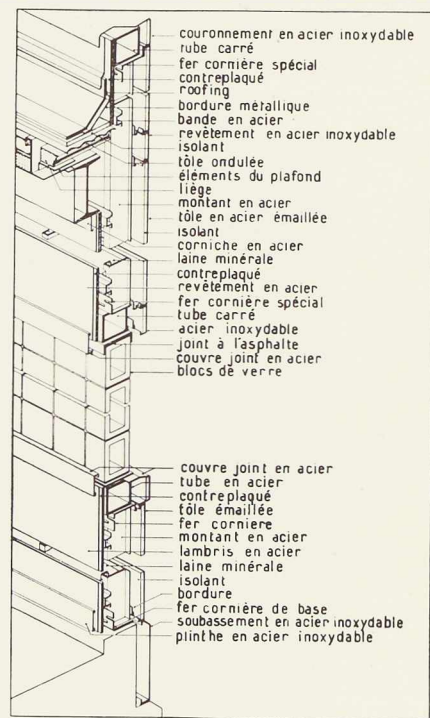 couronnement en acier inoxydable
tube carré
fer cornière spécial
contreplaqué
roofing
bordure métallique
bande en acier
revêtement en acier inoxydable
isolant
tôle ondulée
éléments du plafond
liège
montant en acier
tôle en acier émaillée
isolant
corniche en acier
laine minérale
contreplaqué
revêtement en acier
fer cornière spécial
tube carré
acier inoxydable
joint à l'asphalte
couvre joint en acier
blocs de verre
couvre joint en acier
tube en acier
contreplaqué
tôle émaillée
fer corniere
montant en acier
lambris en acier
laine minérale
isolant
bordure
fer cornière de base
soubassement en acier inoxydable
plinthe en acier inoxydable